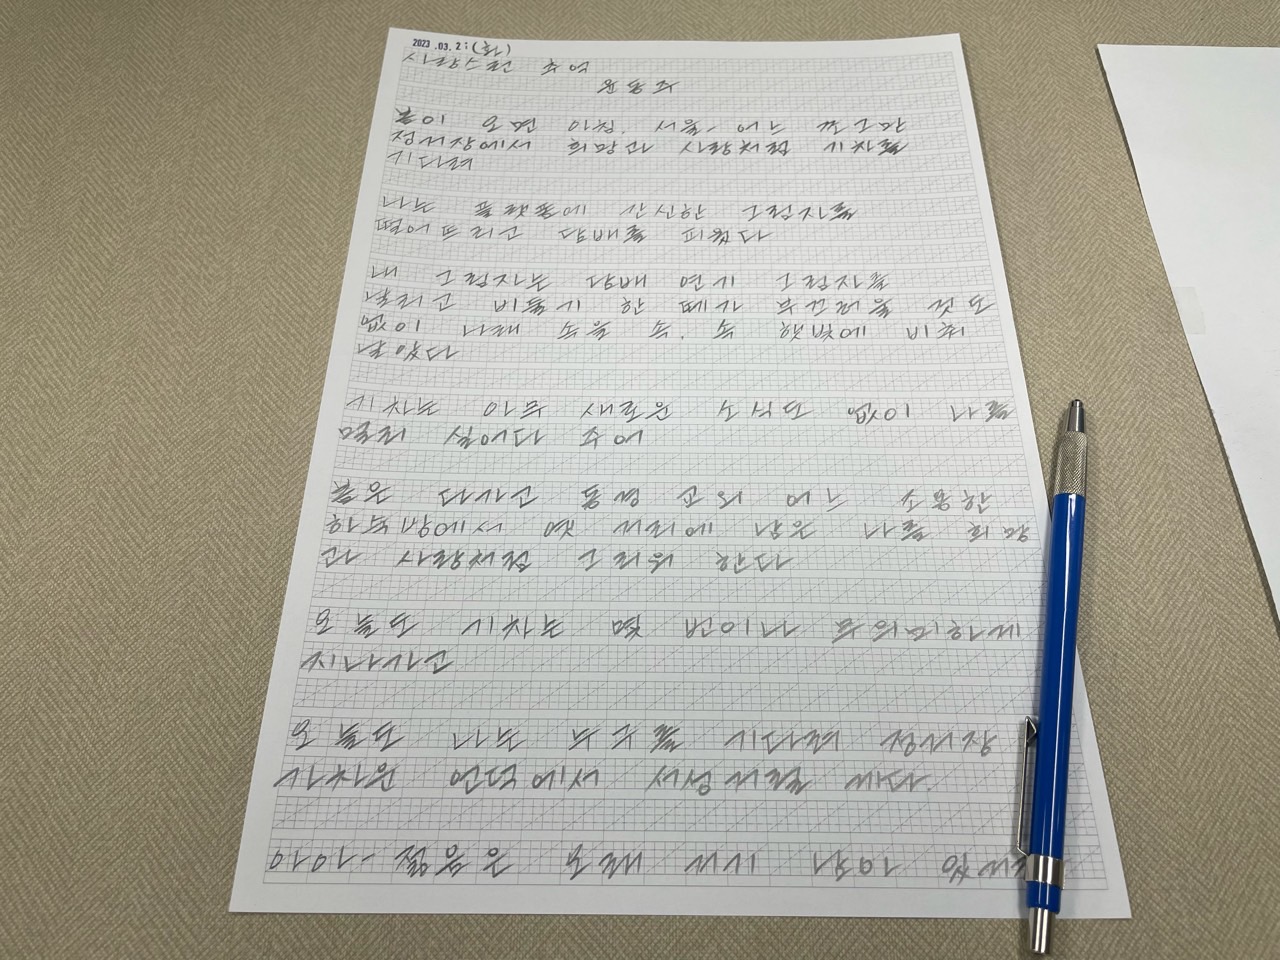 2023.03.21(화)
사랑스런 추억
윤동주
봄이 오면 아침, 서울- 어느 쪼그만
정거장에서 희망과 사랑처럼 기차를
기다려
나는 플랫폼에 간신한 그림자를
떨어뜨리고 담배를 피웠다
내 그림자는 담배 연기 그림자를
날리고 비둘기 한 떼가 부끄러울 것도
없이 나래 속을 속, 속 햇빛에 비춰
날았다
기차는 아무 새로운 소식도 없이 나를
멀리 실어다 주어
봄은 다가고 동경 교외 어느 조용한
하숙방에서 옛 거리에 남은 나를 희망
과 사랑처럼 그리워 한다
오늘도 기차는 몇 번이나 무의미하게
지나가고
오늘도 나는 누구를 기다려 정거장
가차운 언덕에서 서성거릴 게다
아아- 젊음은 오래 거기 남아 있거라